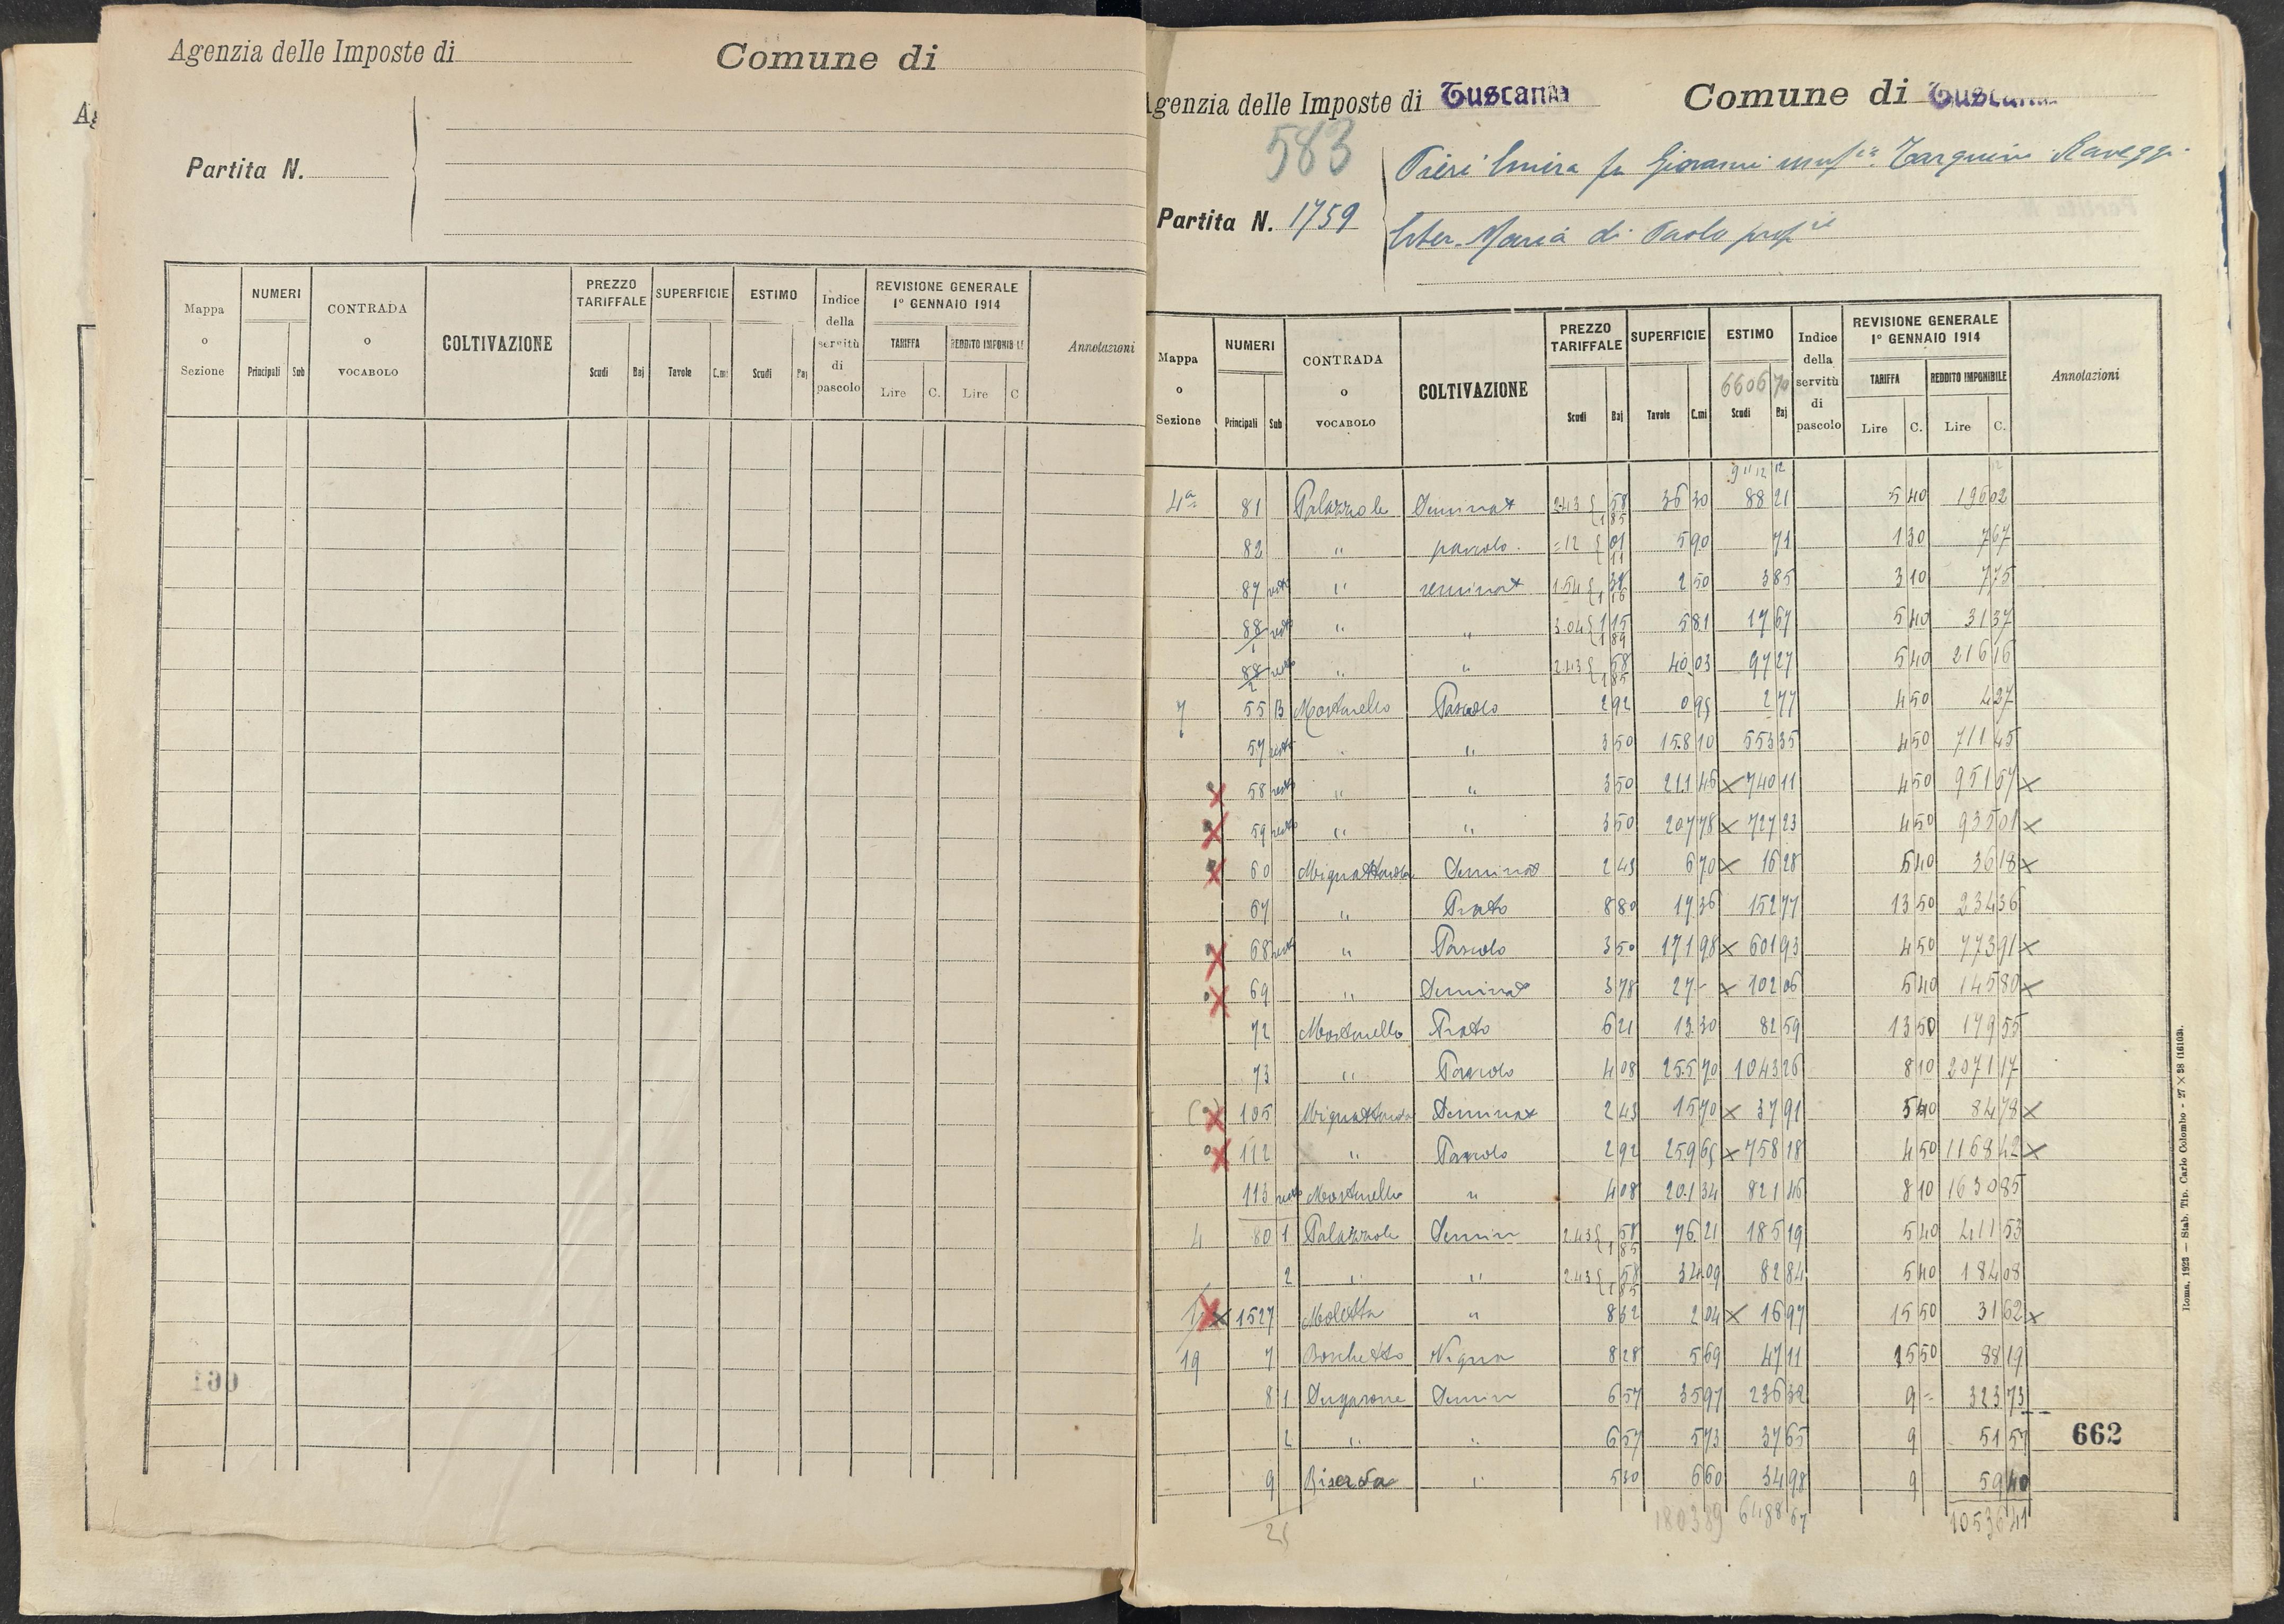 Agenzia delle Imposte di
Comune di
Partita N.
Mappa o Sezione
NUMERI
Principali Sub
CONTRADA o VOCABOLO
COLTIVAZIONE
PREZZO TARIFFALE
Scudi Baj
SUPERFICIE
Tavole C.mi
ESTIMO
Scudi Baj
Indice della servitù di pascolo
REVISIONE GENERALE
1° GENNAIO 1914
TARIFFA
Lire C.
REDDITO IMPONIBILE
Lire C
Annotazioni
100
Agenzia delle Imposte di Tuscania
Comune di Tuscania
583
Partita N. 1759
Pieri fu Giovanni Tarquini
Maria di Paolo
Mappa o Sezione
NUMERI
Principali Sub
CONTRADA o VOCABOLO
COLTIVAZIONE
PREZZO TARIFFALE
Scudi Baj
SUPERFICIE
Tavole C.mi
ESTIMO
6606 70
Scudi Baj
Indice della servitù di pascolo
REVISIONE GENERALE
1° GENNAIO 1914
TARIFFA
Lire C.
REDDITO IMPONIBILE
Lire C.
Annotazioni
4ª 81 Palazzole Seminat 2.43 { 58 1 85 36 30 88 21 5 40 196 02
82 " pascolo =12 { 01 11 5 90 71 1 30 7 67
87 resto " seminat 1.54 { 38 1 16 2 50 3 85 3 10 7 75
88/1 resto " " 3.04 { 1 15 1 89 5 81 17 67 5 40 31 37
88/2 resto " " 2.43 { 58 1 85 40 03 97 27 5 40 216 16
7 55 B Montinello Pascolo 2 92 0 95 2 77 4 50 4 27
57 resto " " 3 50 158 10 553 35 4 50 711 45
x 58 resto " " 3 50 211 46 x 740 11 4 50 951 57 x
x 59 resto " " 3 50 207 78 x 727 23 4 50 935 01 x
x 60 Mignattarola Seminat 2 43 6 70 x 16 28 5 40 36 18 x
67 " Prato 8 80 17 36 152 77 13 50 234 36
x 68 resto " Pascolo 3 50 171 98 x 601 93 4 50 773 91 x
x 69 " Seminat 3 78 27 - x 102 06 5 40 145 80 x
72 Montinello Prato 6 21 13 30 82 59 13 50 179 55
73 " Pascolo 4 08 255 70 1043 26 8 10 2071 17
x 105 Mignattarola Seminat 2 43 15 70 x 37 91 5 40 84 78 x
x 112 " Pascolo 2 92 259 65 x 758 18 4 50 1168 42 x
113 resto Montinello " 4 08 201 34 821 46 8 10 1630 85
4 80 1 Palazzole Semin 2.43 { 58 1 85 76 21 185 19 5 40 411 53
2 " " 2.43 { 58 1 85 34 09 82 84 5 40 184 08
x x 1527 Moletta " 8 32 2 04 x 16 97 15 50 31 62 x
19 7 Boschetto Vigna 8 28 5 69 47 11 15 50 88 19
8 1 Sugarone Semin 6 57 35 97 236 32 9 = 323 73
2 " " 6 57 5 73 37 65 9 51 57
9 Riserva " 5 30 6 60 34 98 9 59 40
25 1803 89 6488 67 10536 41
662
Roma, 1923 — Stab. Tip. Carlo Colombo - 27 × 38 (16103).